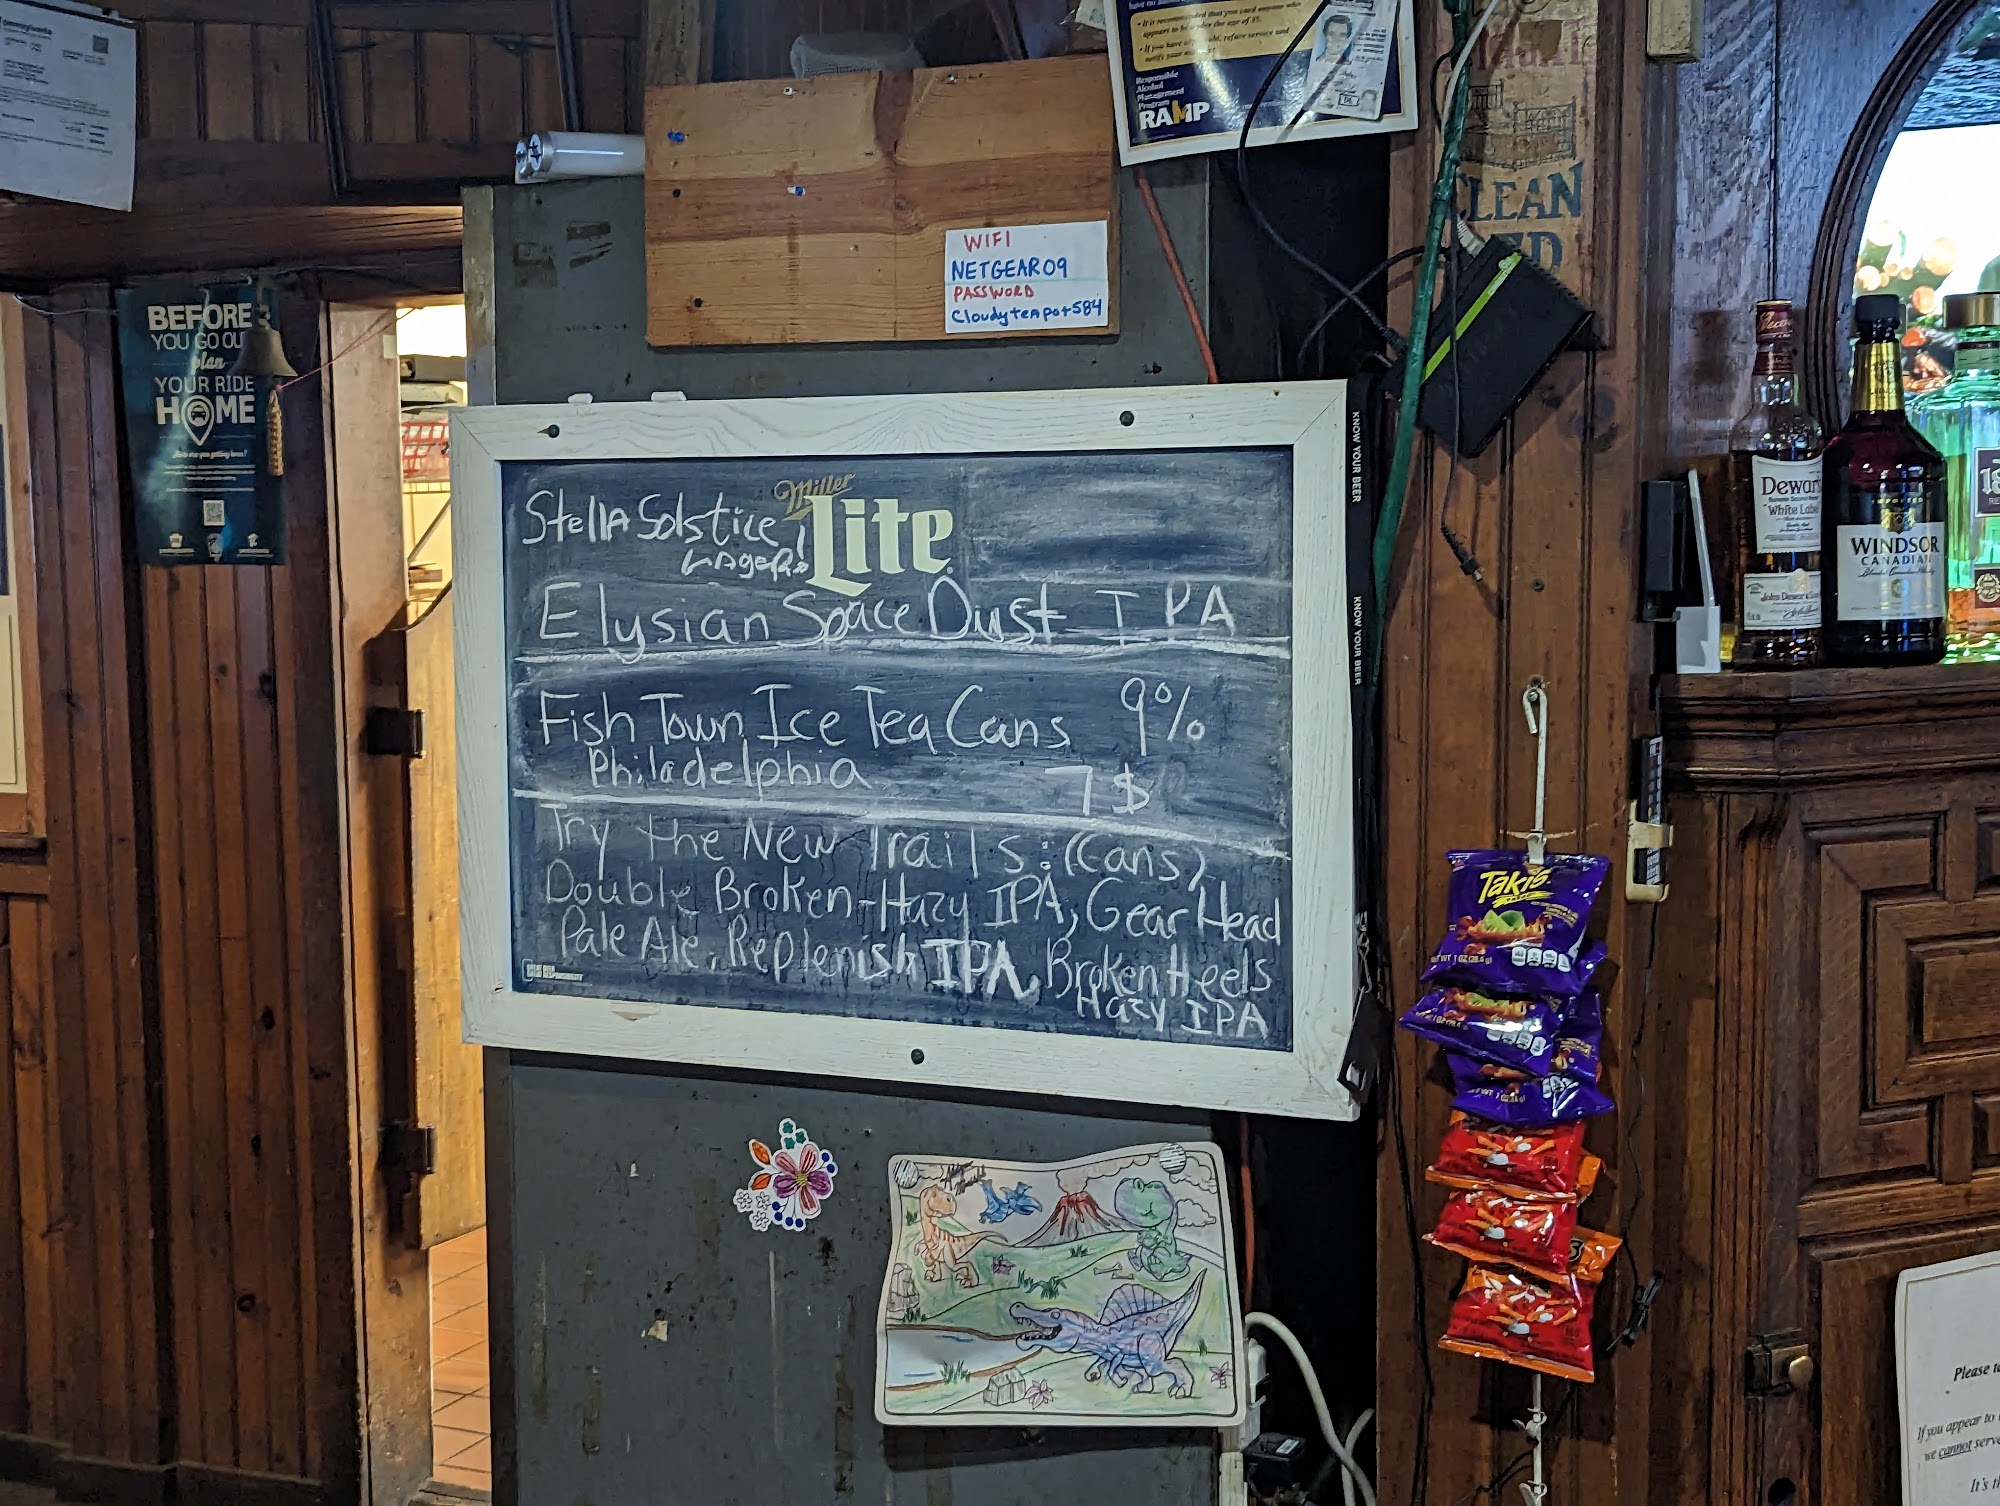 have no
• It is recommended that you card anyone who
appears to be under the age of 35.
• If you have any doubt, refuse service and
notify your
Responsible
Alcohol
Management
Program
RAMP
CLEAN
WIFI
NETGEAR09
PASSWORD
Cloudyteapot584
BEFORE
YOU GO OUT
plan
YOUR RIDE
HOME
Miller
Lite
Stella Solstice
Lager!
Elysian Space Dust IPA
Fish Town Ice Tea Cans 9%
Philadelphia 7$
Try the New Trails: (Cans)
Double Broken-Hazy IPA, Gear Head
Pale Ale, Replenish IPA, Broken Heels
Hazy IPA
KNOW YOUR BEER
KNOW YOUR BEER
Dewar's
White Label
John Dewar & Sons
WINDSOR
CANADIAN
Blended Canadian Whisky
Takis
NET WT 1 OZ (28.4 g)
Please
If you appear to
we cannot serve
It's